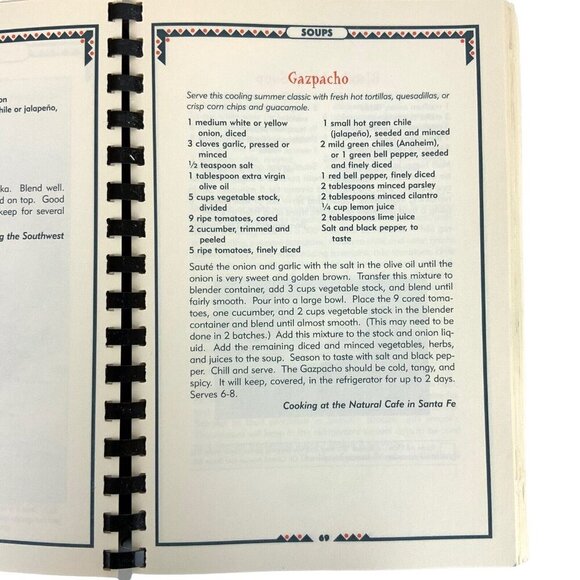 on
hile or jalapeño,
ka. Blend well.
d on top. Good
keep for several
g the Southwest
SOUPS
Gazpacho
Serve this cooling summer classic with fresh hot tortillas, quesadillas, or
crisp corn chips and guacamole.
1 medium white or yellow
onion, diced
3 cloves garlic, pressed or
minced
½ teaspoon salt
1 tablespoon extra virgin
olive oil
5 cups vegetable stock,
divided
9 ripe tomatoes, cored
2 cucumber, trimmed and
peeled
5 ripe tomatoes, finely diced
1 small hot green chile
(jalapeño), seeded and minced
2 mild green chiles (Anaheim),
or 1 green bell pepper, seeded
and finely diced
1 red bell pepper, finely diced
2 tablespoons minced parsley
2 tablespoons minced cilantro
¼ cup lemon juice
2 tablespoons lime juice
Salt and black pepper, to
taste
Sauté the onion and garlic with the salt in the olive oil until the
onion is very sweet and golden brown. Transfer this mixture to
blender container, add 3 cups vegetable stock, and blend until
fairly smooth. Pour into a large bowl. Place the 9 cored toma-
toes, one cucumber, and 2 cups vegetable stock in the blender
container and blend until almost smooth. (This may need to be
done in 2 batches.) Add this mixture to the stock and onion liq-
uid. Add the remaining diced and minced vegetables, herbs,
and juices to the soup. Season to taste with salt and black pep-
per. Chill and serve. The Gazpacho should be cold, tangy, and
spicy. It will keep, covered, in the refrigerator for up to 2 days.
Serves 6-8.
Cooking at the Natural Cafe in Santa Fe
69